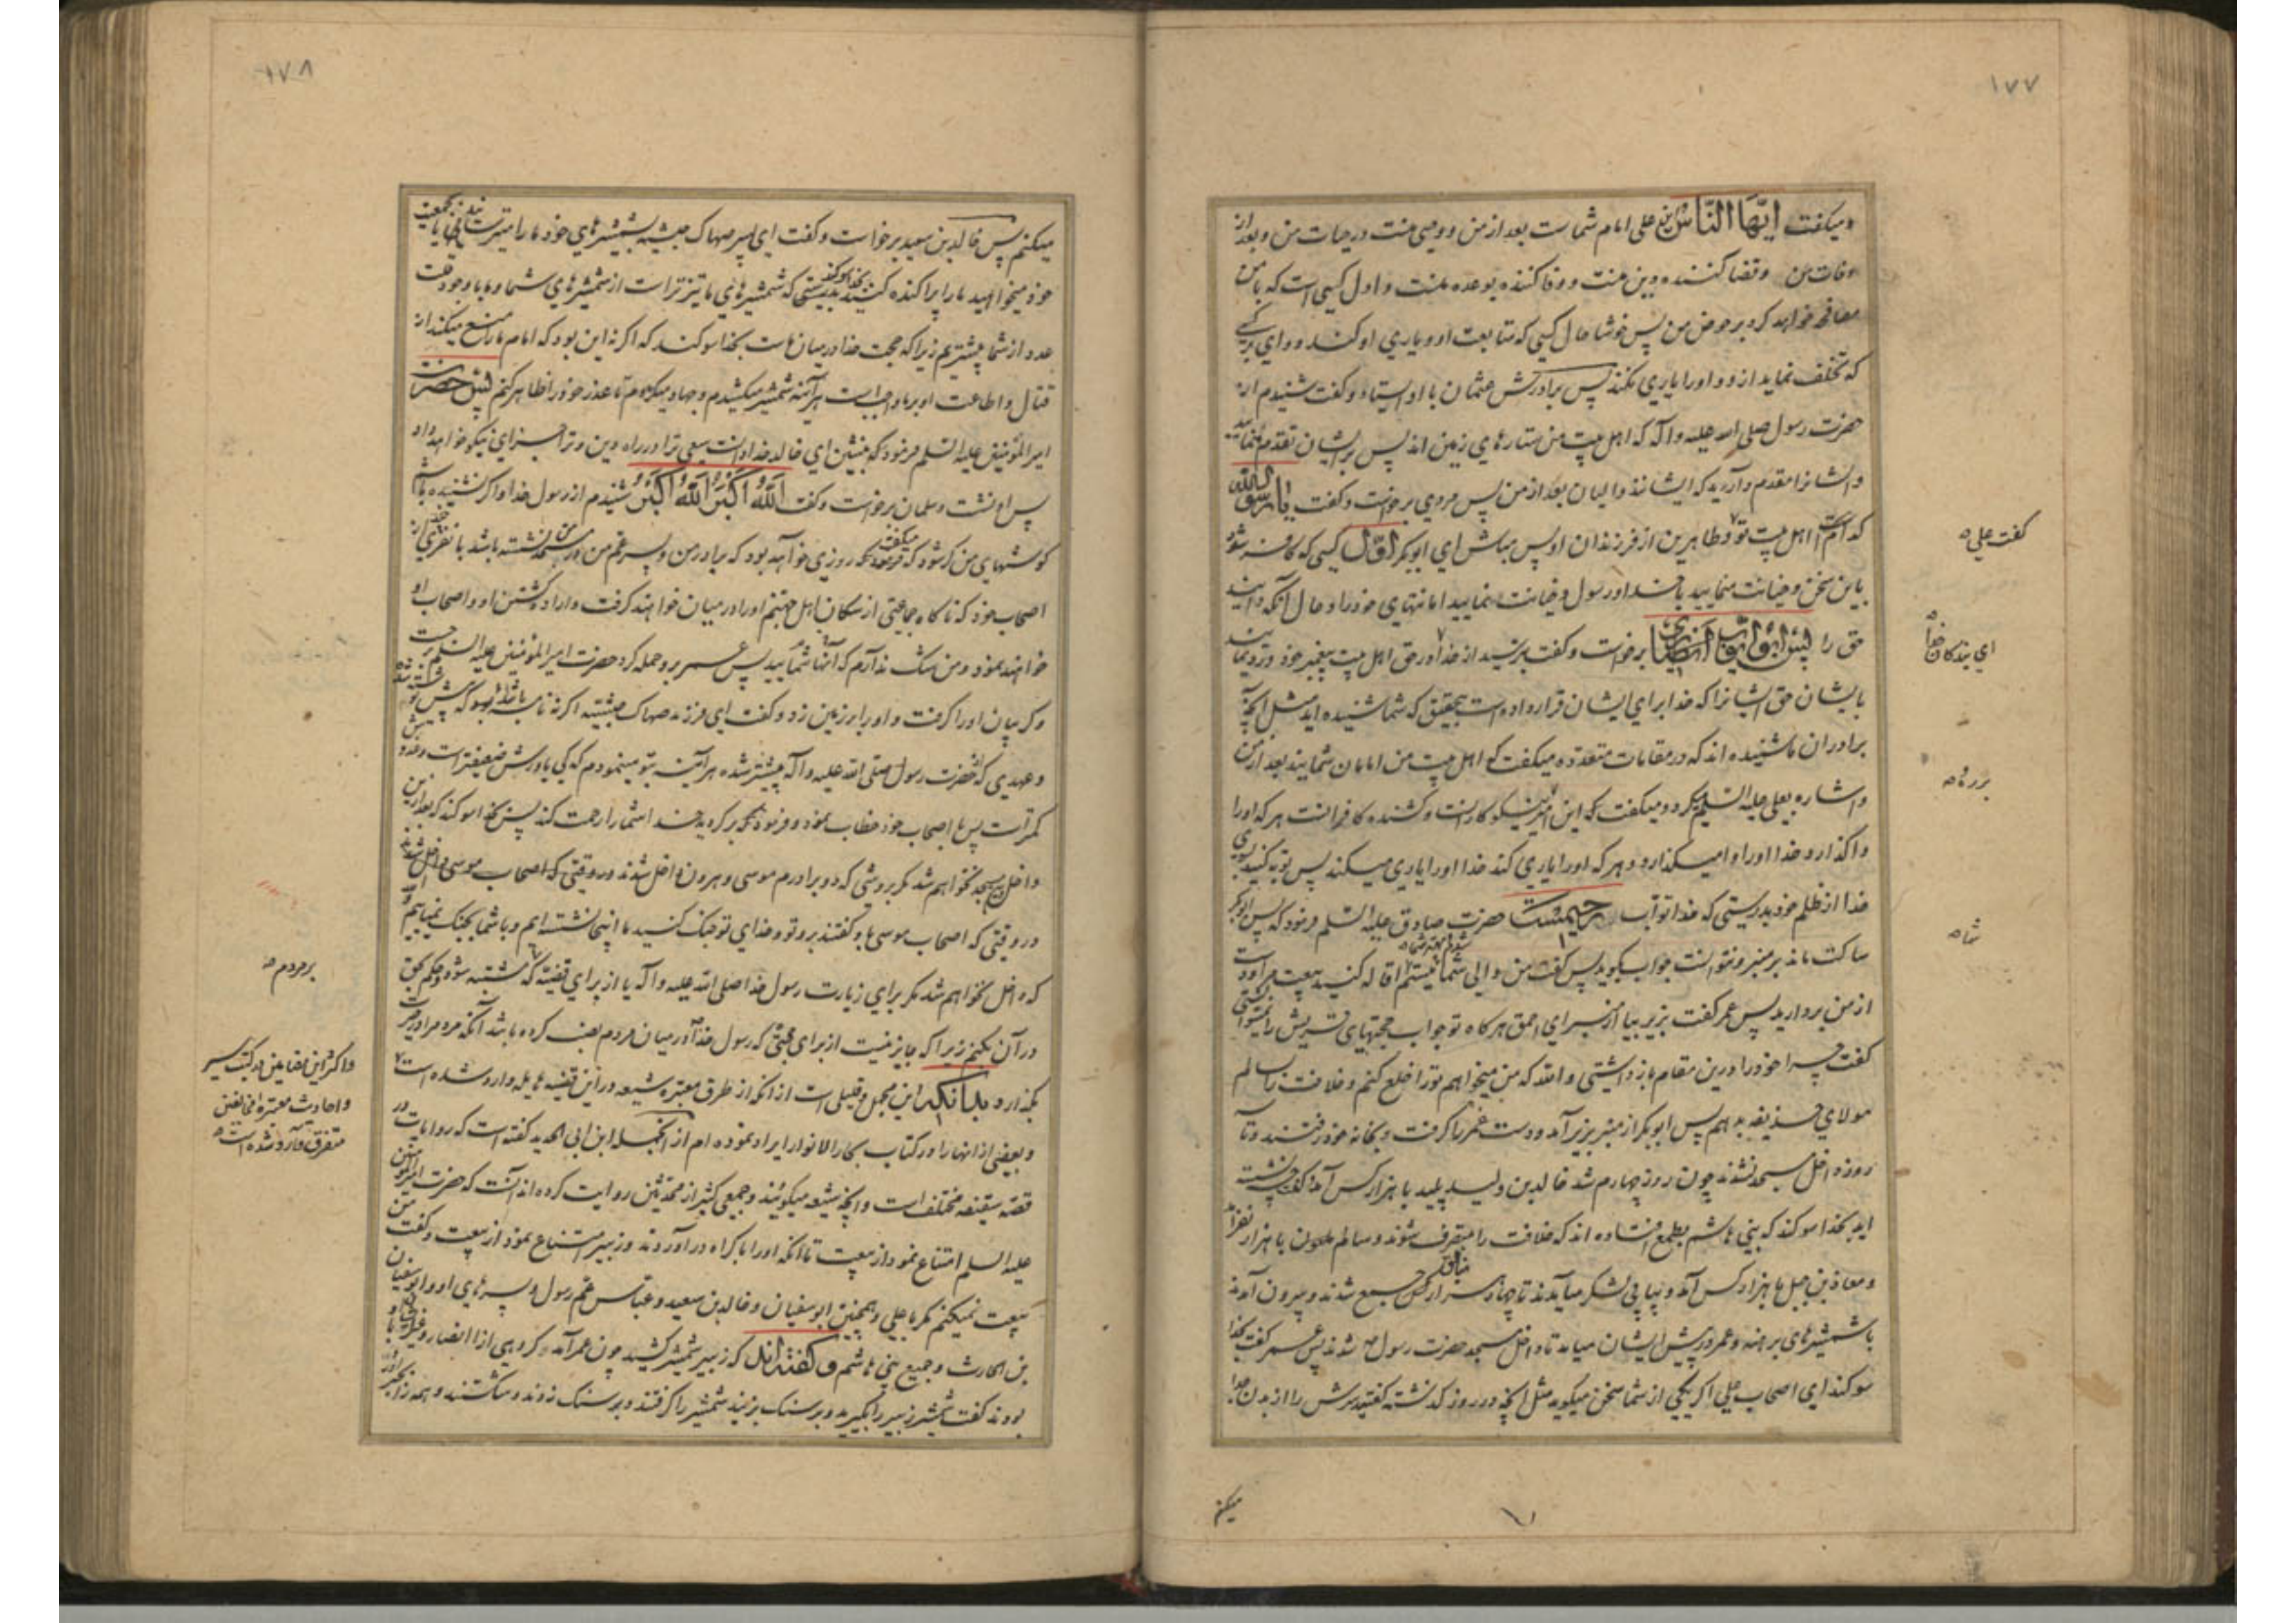 ۱۷۷
و میکفت ایّها النّاس این علی امام شماست بعد از من و وصی منست در حیات من و بعد از
وفات من و قضا کننده دین منست و وفا کننده بوعده منست و اول کسی است که با من
مصافحه خواهد کرد بر حوض من پس خوشا حال کسی که متابعت او و یاری او کند و وای بر کسی
که تخلف نماید از و و او را یاری نکند پس برادرش عثمان با او ایستاد و کفت شنیدم از
حضرت رسول صلی الله علیه و آله که اهل بیت من ستارهای زمین اند پس بر ایشان تقدم منمایید
و ایشانرا مقدم دارید که ایشانند والیان بعد از من پس مردی برخواست و کفت یا رسول الله
کدام است اهل بیت تو علی و طاهرین از فرزندان او پس مباش ای ابوبکر اوّل کسی که کافر شود
کفت علی
باین سخن و خیانت منمایید با خدا و رسول و خیانت منمایید امانتهای خود را و حال آنکه دانید
حق را پس ابو ایّوب انصاری برخواست و کفت بترسید از خدا در حق اهل بیت پیغمبر خود و رد نمایید
ای بندکان خدا
بایشان حق ایشانرا که خدا برای ایشان قرار داده است بتحقیق که شما شنیده اید مثل آنچه
برادران ما شنیده اند که در مقامات متعدده میکفت که اهل بیت من امامان شمایند بعد از من
و اشاره بعلی علیه السلم میکرد و میکفت که این امیر نیکو کارانست و کشنده کافرانست هر که او را
واکذارد خدا او را وامیکذارد و هر که او را یاری کند خدا او را یاری میکند پس توبه کنید بسوی
خدا از ظلم خود بدرستی که خدا توّاب رحیمست حضرت صادق علیه السّلم فرمود که پس ابوبکر
شما
ساکت ماند بر منبر و نتوانست جواب بکوید پس کفت من والی شما شدم و بهتر شما نیستم اقاله کنید بیعت مرا و دست
از من بردارید پس عمر کفت بزیر بیا از منبر ای احمق هرکاه تو جواب حجتهای قریش را نمیتوانی
کفت چرا خود را درین مقام باز داشتی والله که من میخواهم تو را خلع کنم و خلافت را بسالم
مولای حذیفه بدهم پس ابوبکر از منبر بزیر آمد و دست عمر را کرفت و بخانه خود رفتند و تا سه
روز داخل مسجد نشدند چون روز چهارم شد خالد بن ولید پلید با هزار کس آمد و کفت چه نشسته
اید بخدا سوکند که بنی هاشم بطمع افتاده اند که خلافت را متصرف شوند و سالم ملعون با هزار نفر آمد
و معاذ بن جبل با هزار کس آمد و پیاپی لشکر میآمدند تا چهار هزار کس منافق جمع شدند و بیرون آمدند
با شمشیرهای برهنه و عمر در پیش ایشان میامد تا داخل مسجد حضرت رسول شدند پس عمر کفت بخدا
سوکند ای اصحاب علی اکر یکی از شما سخن میکوید مثل آنچه در روز کذشته کفتید سرش را از بدن جدا
میکنم
۱۷۸
میکنم پس خالد بن سعید برخواست و کفت ای پسر صهاک حبشیه بشمشیرهای خود ما را میترسانید یا بجمعیت
خود میخواهید ما را پراکنده کنید بخدا سوکند بدرستی که شمشیرهای ما تیزتر است از شمشیرهای شما و ما با وجود قلت
عدد از شما بیشتریم زیرا که حجت خدا در میان ماست بخدا سوکند که اکر نه این بود که امام ما را منع میکند از
قتال و اطاعت او بر ما واجب است هر آینه شمشیر میکشیدم و جهاد میکردم تا عذر خود را ظاهر کنم پس حضرت
امیر المؤمنین علیه السّلم فرمود که بنشین ای خالد خدا دانست سعی ترا در راه دین و ترا جزای نیکو خواهد داد
پس او نشست و سلمان برخواست و کفت الله اکبر الله اکبر شنیدم از رسول خدا و اکر نشنیده باشم
کوشهای من کر شود که میکفت روزی خواهد بود که برادر من و پسر عم من در مسجد من نشسته باشد با نفری چند از
اصحاب خود که ناکاه جماعتی از سکان اهل جهنم او را در میان خواهند کرفت و اراده کشتن او و اصحاب او
خواهند نمود و من شک ندارم که آنها شمایید پس عمر برو حمله کرد حضرت امیر المؤمنین علیه السلم برجست
و کریبان او را کرفت و او را بر زمین زد و کفت ای فرزند صهاک حبشیه اکر نه نامه نوشته شده
و عهدی که حضرت رسول صلی الله علیه و آله پیشتر شده هر آینه بتو مینمودم که کی یاورش ضعیفتر است و عدد
کمتر است پس با اصحاب خود خطاب نمود و فرمود که برکردید خدا شما را رحمت کند پس بخدا سوکند که بعد ازین
داخل مسجد نخواهم شد مکر بروشی که دو برادرم موسی و هرون داخل شدند در وقتی که اصحاب موسی
در وقتی که اصحاب موسی باو کفتند برو تو و خدای تو جنک کنید ما اینجا نشسته ایم و با شما بجنک نمیاییم
که داخل نخواهم شد مکر برای زیارت رسول خدا صلی الله علیه و آله یا از برای قضیه که مشتبه شود و حکم بحق
بر مردم
در آن بکنم زیرا که جایز نیست از برای حجتی که رسول خدا در میان مردم نصب کرده باشد آنکه مردم را در حیرت
بکذارد بدانکه این مجمل و قلیلی است از آنکه از طرق معتبره شیعه در این قضیه هایله وارد شده است
و اکثر این مضامین در کتب سیر
و احادیث معتبره مخالفین
متفرق وارد شده است
و بعضی از انها را در کتاب بحار الانوار ایراد نموده ام از آنجمله ابن ابی الحدید کفته است که روایات در
قصّه سقیفه مختلف است و آنچه شیعه میکویند و جمعی کثیر از محدثین روایت کرده اند آنست که حضرت امیر المؤمنین
علیه السلم امتناع نمود از بیعت تا آنکه او را باکراه در آوردند و زبیر امتناع نمود از بیعت و کفت من
بیعت نمیکنم مکر با علی و همچنین ابو سفیان و خالد بن سعید و عباس عم رسول و پسرهای او و ابو سفیان
بن الحارث و جمیع بنی هاشم و کفته اند که زبیر شمشیر کشید چون عمر آمد و کروهی از انصار و غیر ایشان با او
بودند کفت شمشیر زبیر را بکیرید و بر سنک بزنید شمشیر را کرفتند و بر سنک زدند و شکستند و همه را بجبر